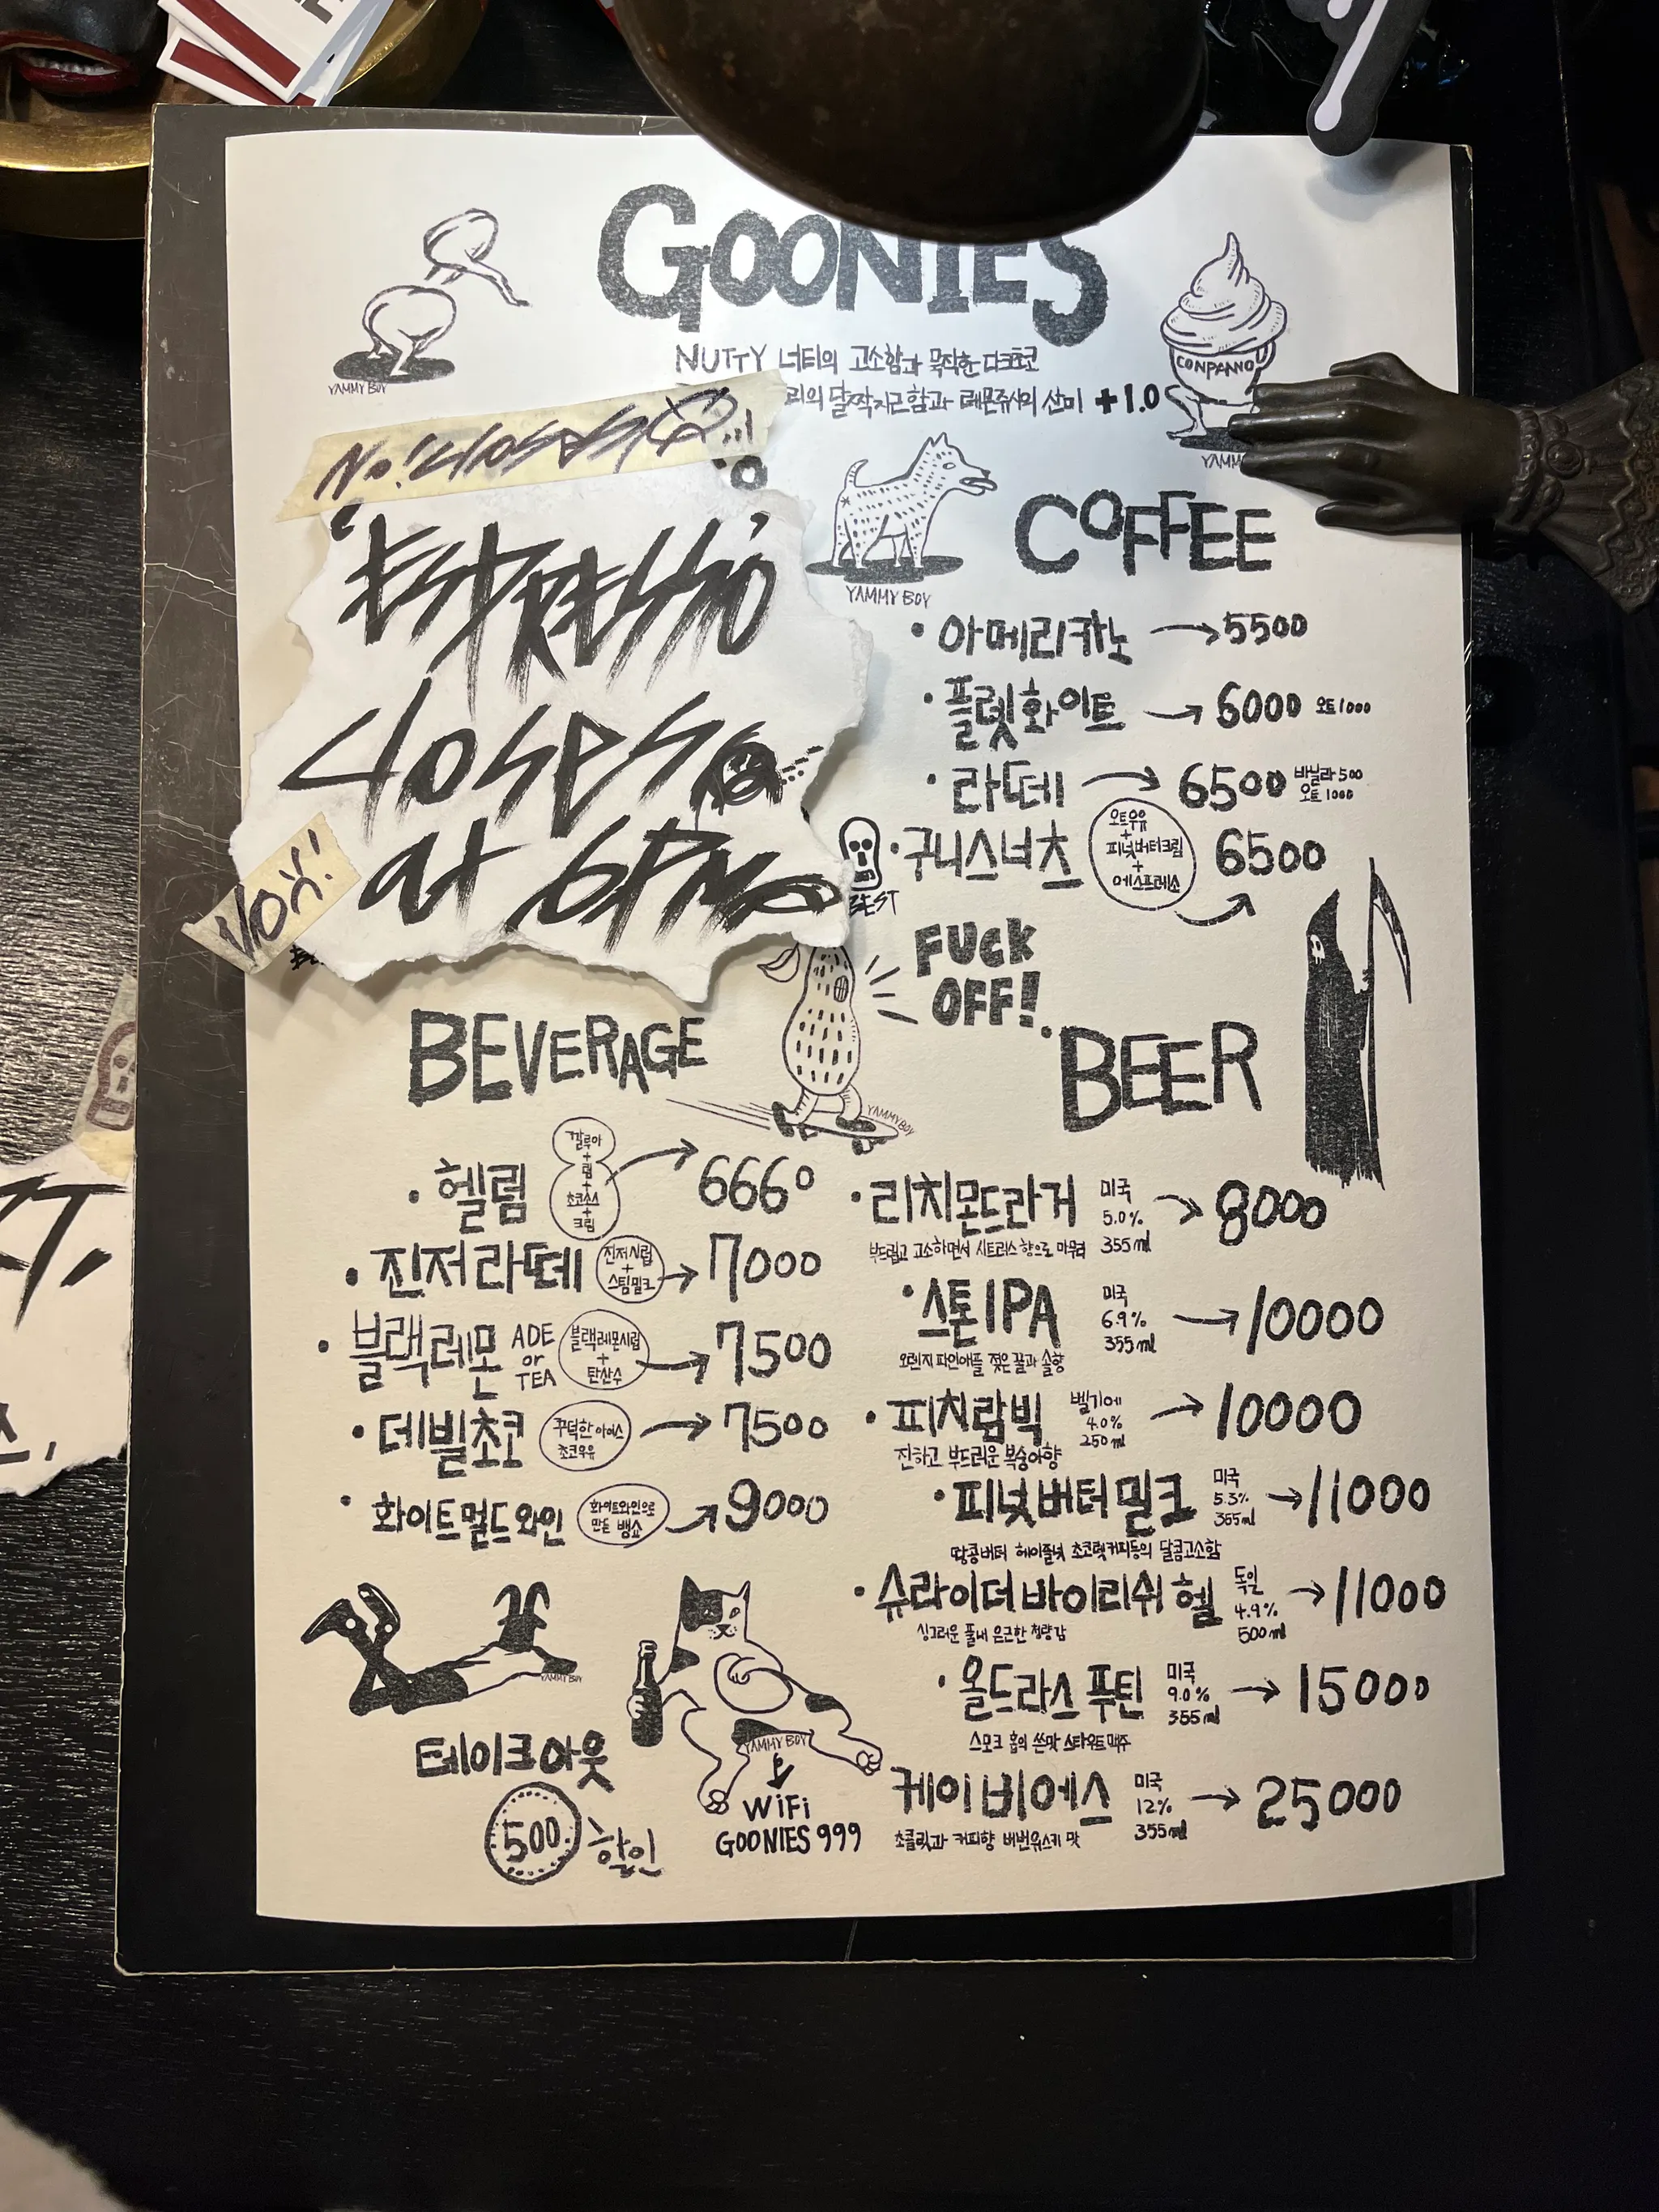 GOONIES
NUTTY 너티의 고소함과 묵직한 다크초코
리의 달짝지근함과 레몬쥬시의 산미 +1.0
YAMMY BOY
CONPANNO
YAMM
No! closes
'ESPRESSO'
closes
at 6PM
YAMMY BOY
COFFEE
• 아메리카노 → 5500
• 플렛화이트 → 6000 오트1000
• 라떼 → 6500 바닐라 500
오트 1000
• 구니스너츠 오트우유 + 피넛버터크림 + 에스프레소 6500
BEST
FUCK
OFF!
BEVERAGE
YAMMY BOY
• 헬륨 깔루아 + 럼 + 초코소스 + 크림 → 6660
• 진저라떼 진저시럽 + 스팀밀크 → 7000
• 블랙레몬 ADE or TEA 블랙레몬시럽 + 탄산수 → 7500
• 데빌초코 꾸덕한 아이스 초코우유 → 7500
• 화이트멀드와인 화이트와인으로 만든 뱅쇼 → 9000
BEER
• 리치몬드라거 미국 5.0% 355ml → 8000
부드럽고 고소하면서 시트러스 향으로 마무리
• 스톤IPA 미국 6.9% 355ml → 10000
오렌지 파인애플 젖은 꿀과 솔향
• 피치람빅 벨기에 4.0% 250ml → 10000
진하고 부드러운 복숭아향
• 피넛버터밀크 미국 5.3% 355ml → 11000
땅콩버터 헤이즐넛 초코릿커피등의 달콤고소함
• 슈라이더바이리쉬헬 독일 4.9% 500ml → 11000
싱그러운 풀내 은근한 청량감
• 올드라스푸틴 미국 9.0% 355ml → 15000
스모크 홉의 쓴맛 스타우트맥주
케이비에스 미국 12% 355ml → 25000
초콜릿과 커피향 버번위스키 맛
YAMMY BOY
YAMMY BOY
테이크아웃
500 할인
WiFi
GOONIES 999